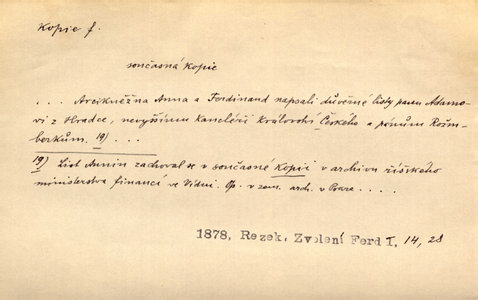 Kopie f.
současná kopie
... Arcikněžna Anna a Ferdinand napsali důvěrné listy panu Adamo-
vi z Hradce, nejvyššímu kancléři království Českého a pánům Rožm-
berkům. 19) ...
19) List Annin zachoval se v současné kopii v archivu říšského
ministerstva financí ve Vídni. Op. v zem. arch. v Praze ....
1878, Rezek, Zvolení Ferd I, 14, 28